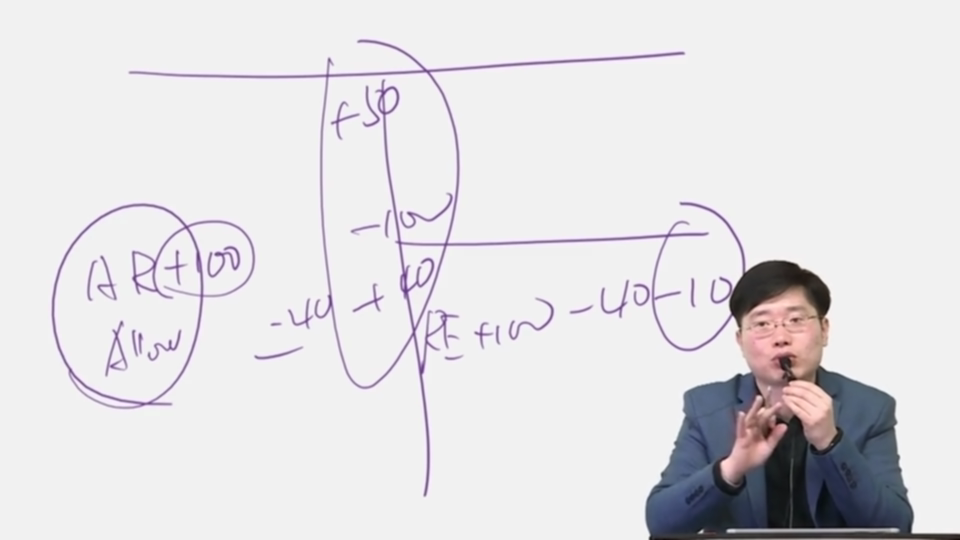 +50
-100
AR +100
Allow -40 +40
RE +100 -40 -10